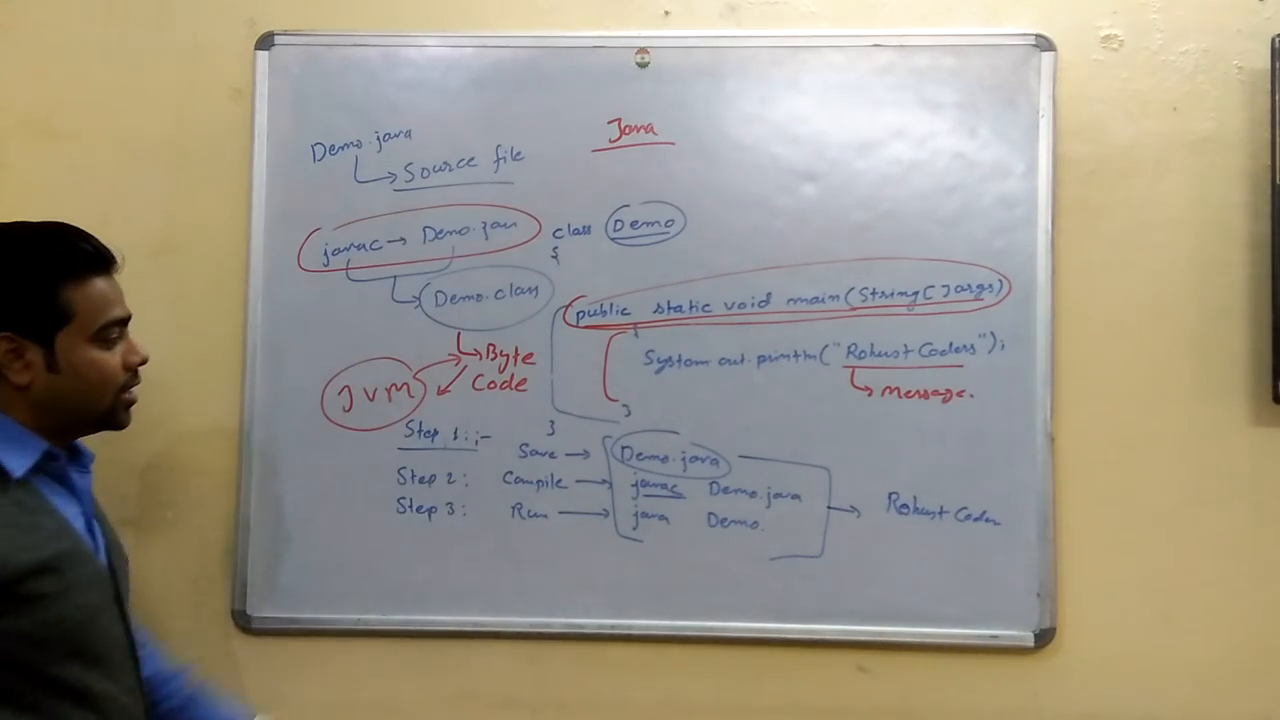 Java
Demo.java
Source file
javac → Demo.java
Demo.class
Byte
Code
JVM
class Demo
{
public static void main(String[]args)
{
System.out.println("Robust Coders");
Message.
}
}
Step 1:;- Save → Demo.java
Step 2: Compile → javac Demo.java
Step 3: Run → java Demo.
→ Robust Coder